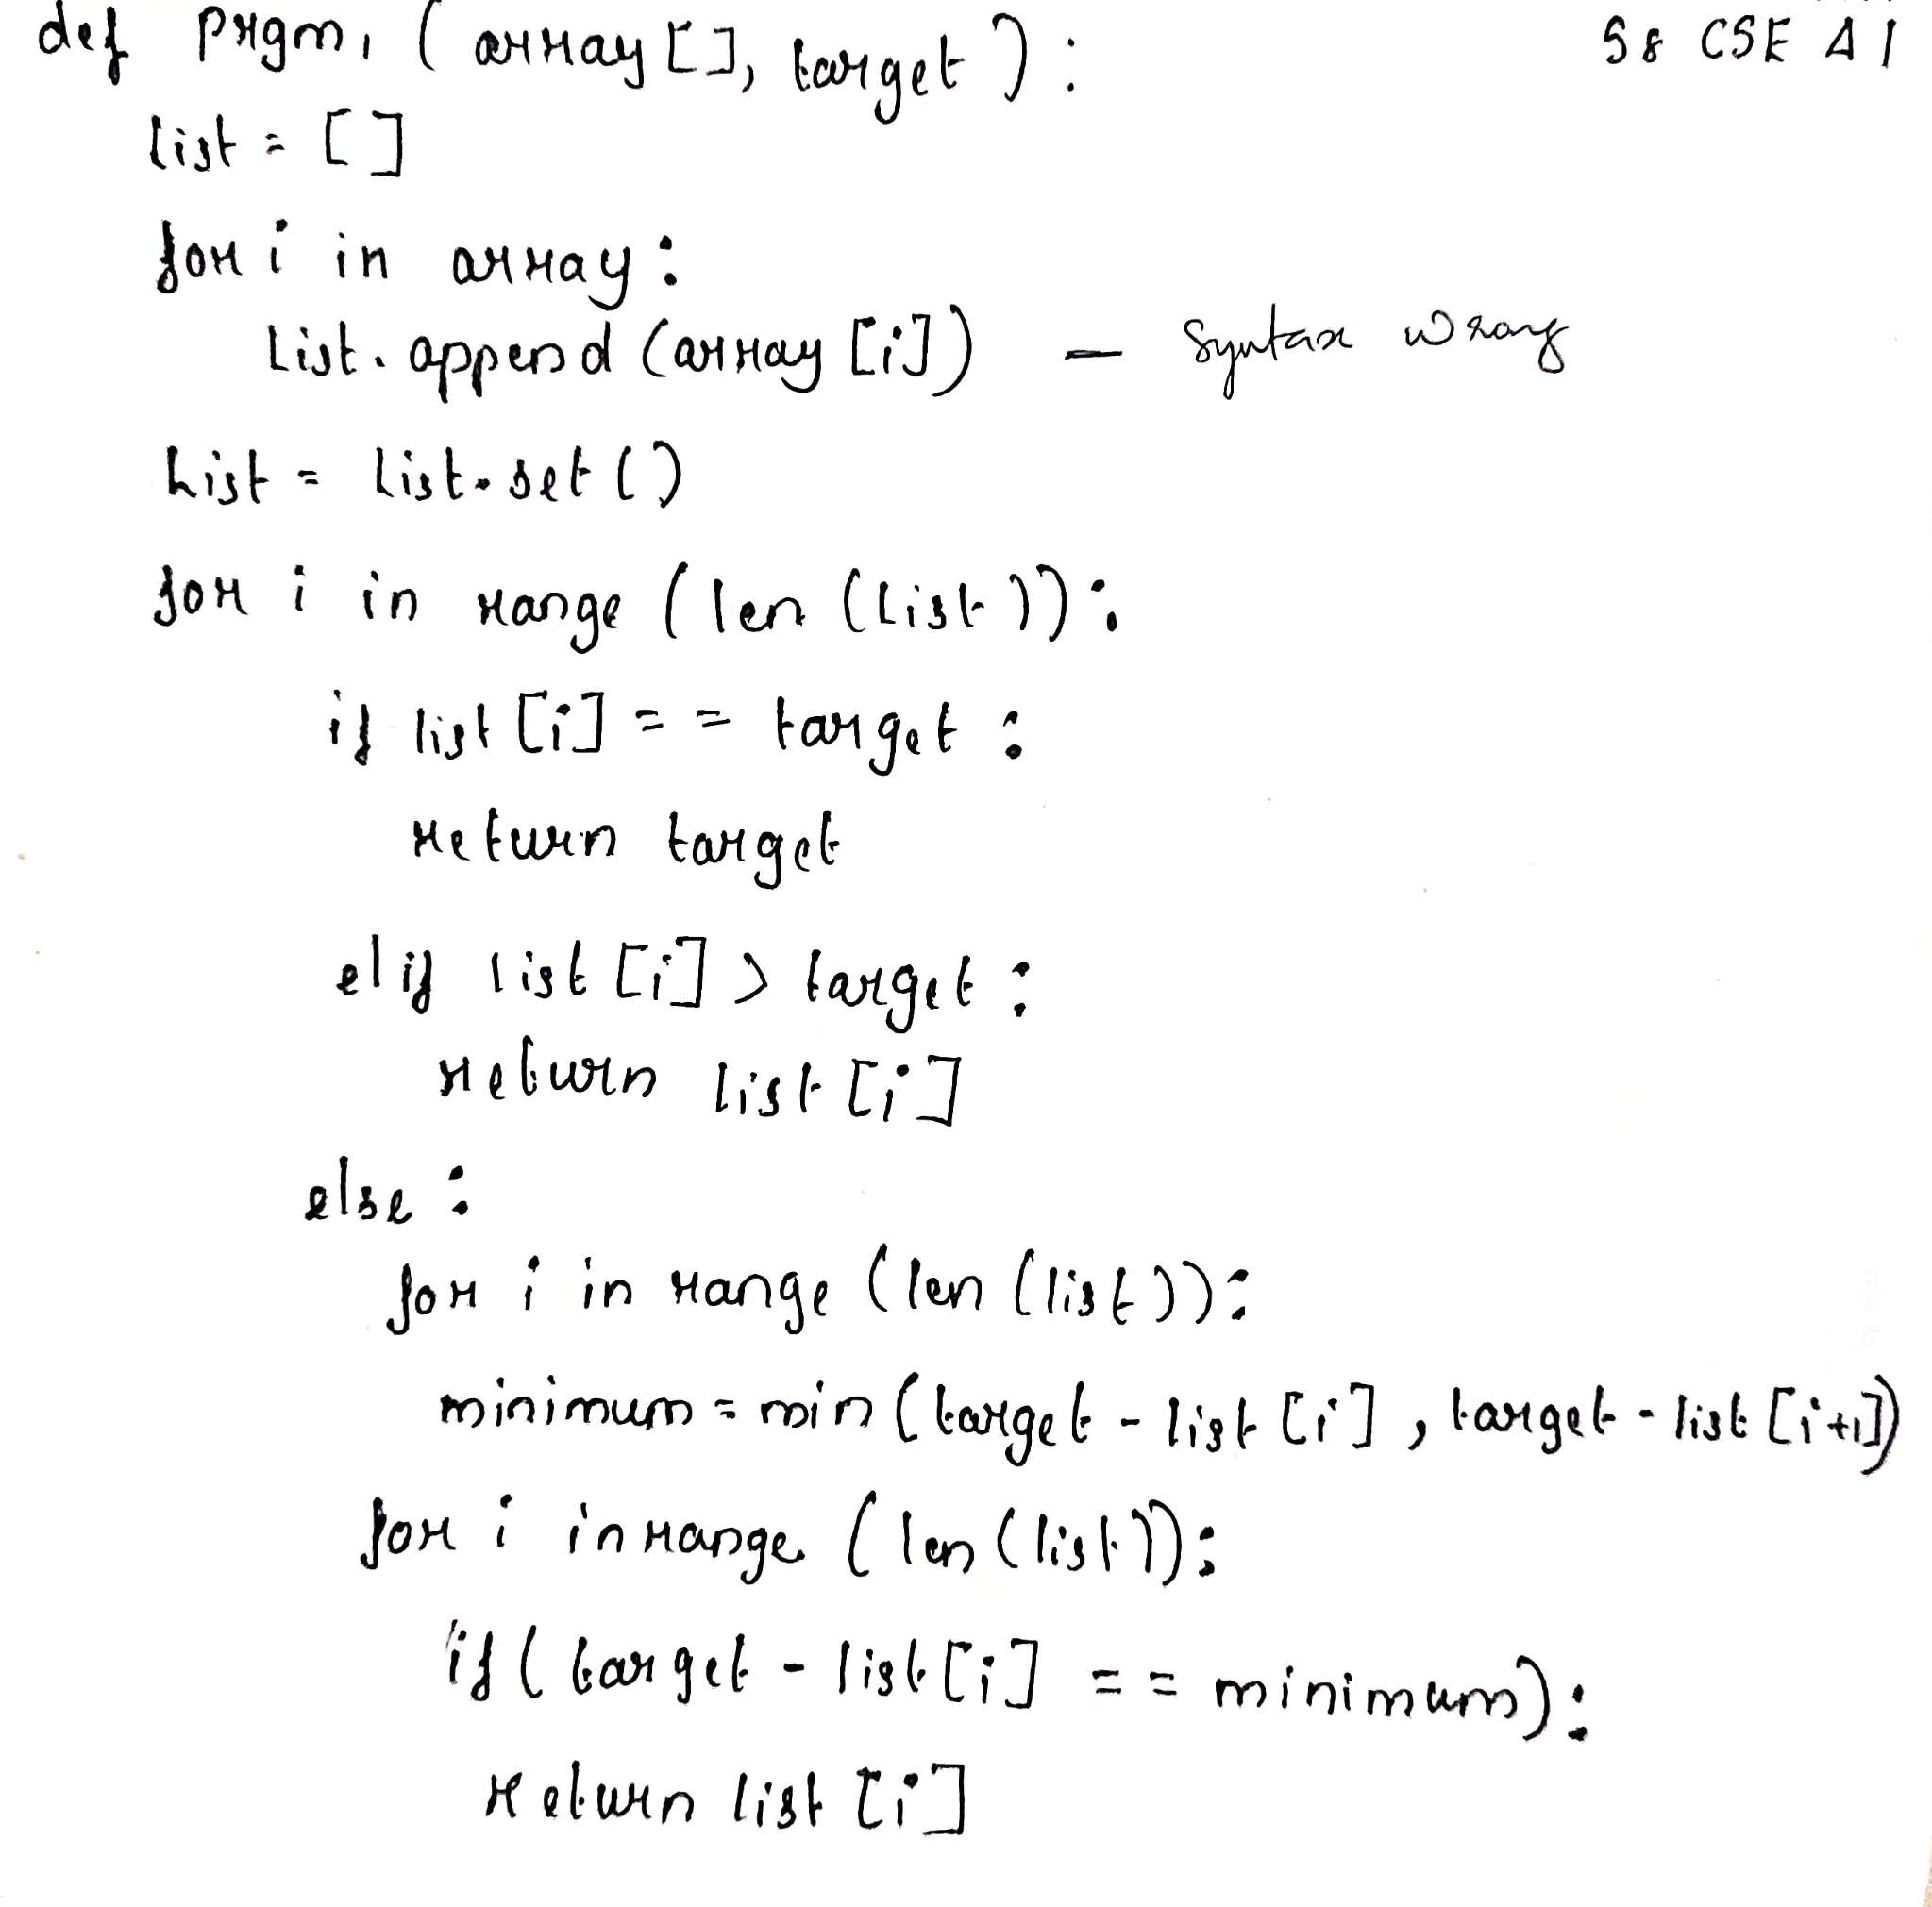 def prgm1 ( array [ ], target ) :
S8 CSE A1
list = [ ]
for i in array :
list. append (array [i]) — Syntax wrong
List = list.set ( )
for i in range ( len (list )) :
if list [i] = = target :
return target
elif list [i] > target :
return list [i]
else :
for i in range (len (list)) :
minimum = min ( target - list [i] , target - list [i+1])
for i in range ( len (list)) :
if ( target - list [i] == minimum) :
return list [i]